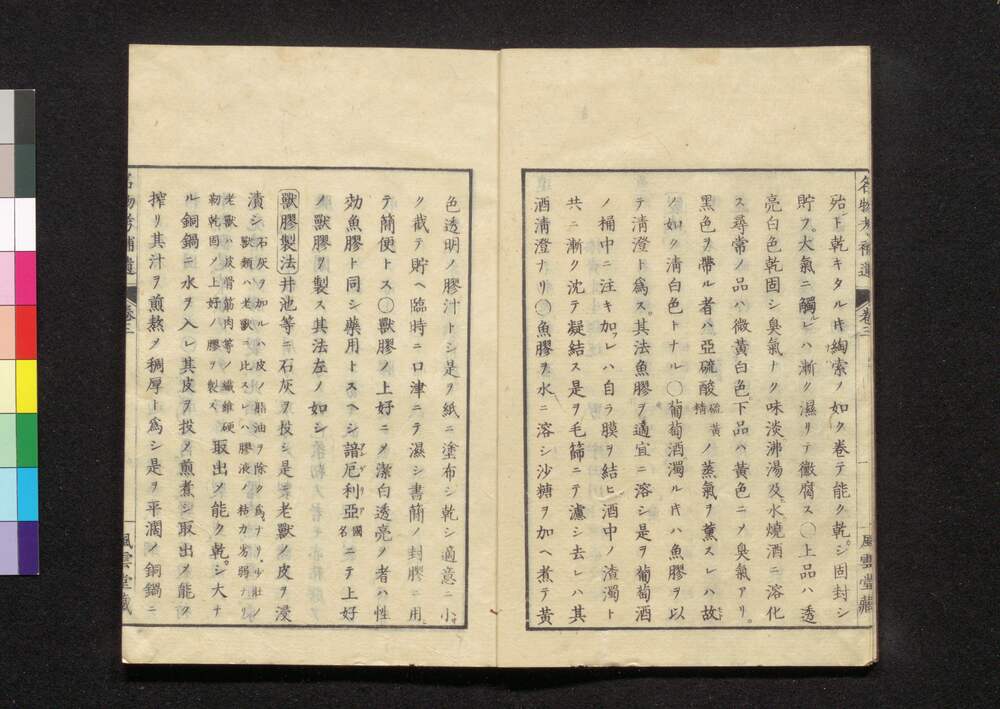 名物考補遺 卷三 風雲堂藏
殆ト乾キタル𪜈綯索ノ如ク卷テ能ク乾シ固封シ
貯フ大氣ニ觸レハ漸ク濕リテ黴腐ス○上品ハ透
亮白色乾固シ臭氣ナク味淡沸湯及水燒酒ニ溶化
ス尋常ノ品ハ微黃白色下品ハ黃色ニ〆臭氣アリ
黑色ヲ帶ル者ハ亞硫酸硫黃精ノ蒸氣ヲ薰スレハ故
ノ如ク淸白色トナル○葡萄酒濁ル𪜈ハ魚膠ヲ以
テ淸澄ト爲ス其法魚膠ヲ適宜ニ溶シ是ヲ葡萄酒
ノ桶中ニ注キ加レハ自ラ膜ヲ結ヒ酒中ノ漬濁ト
共ニ漸ク沈テ凝結ス是ヲ毛篩ニテ濾シ去レハ其
酒淸澄ナリ○魚膠ヲ水ニ溶シ沙糖ヲ加ヘ煮テ黃
色透明ノ膠汁トシ是ヲ紙ニ塗布シ乾シ適意ニ小
ク截テ貯ヘ臨時ニ口津ニテ濕シ書簡ノ封膠ニ用
テ簡便トス○獸膠ノ上好ニ〆潔白透亮ノ者ハ性
効魚膠ト同シ藥用トスヘシ諳厄利亞國名ニテ上好
ノ獸膠ヲ製ス其法左ノ如シ
獸膠製法 井池等ニ石灰ヲ投シ是ニ老獸ノ皮ヲ浸
漬シ石灰ヲ加ルハ皮ノ脂油ヲ除ク爲ナリ少壯ノ獸類ハ老獸ニ此スレハ膠液ノ粘力劣弱ナリ
老獸ハ皮骨筋肉等ノ纖維硬靭乾固ノ上好ノ膠ヲ製ス取出〆能ク乾シ大ナ
ル銅鍋ニ水ヲ入レ其皮ヲ投〆煎煮シ取出〆能ク
搾リ其汁ヲ煎熬〆稠厚ト爲シ是ヲ平濶ノ銅鍋ニ
名物考補遺 卷三 風雲堂藏